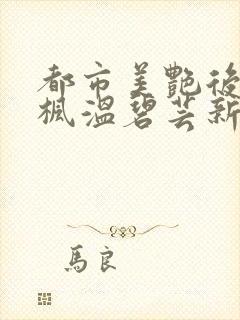 都市美艷後
楓溫碧芸新
馬良